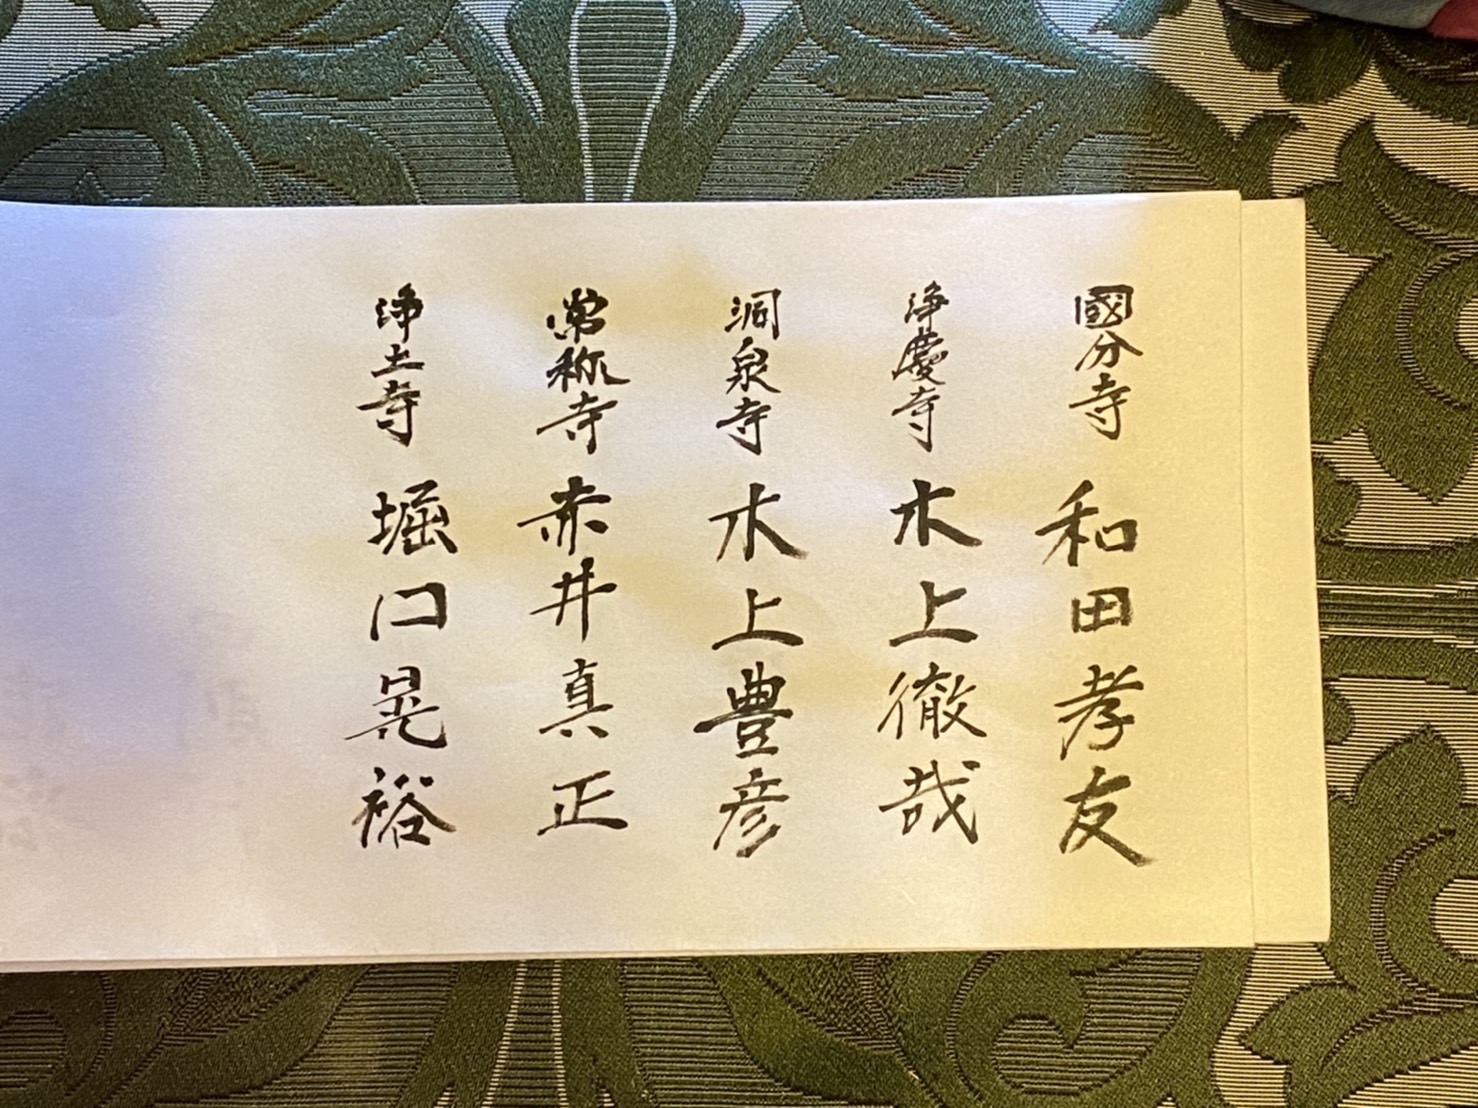 國分寺 和田孝友
浄慶寺 木上徹哉
洞泉寺 木上豊彦
常称寺 赤井真正
浄土寺 堀口晃裕